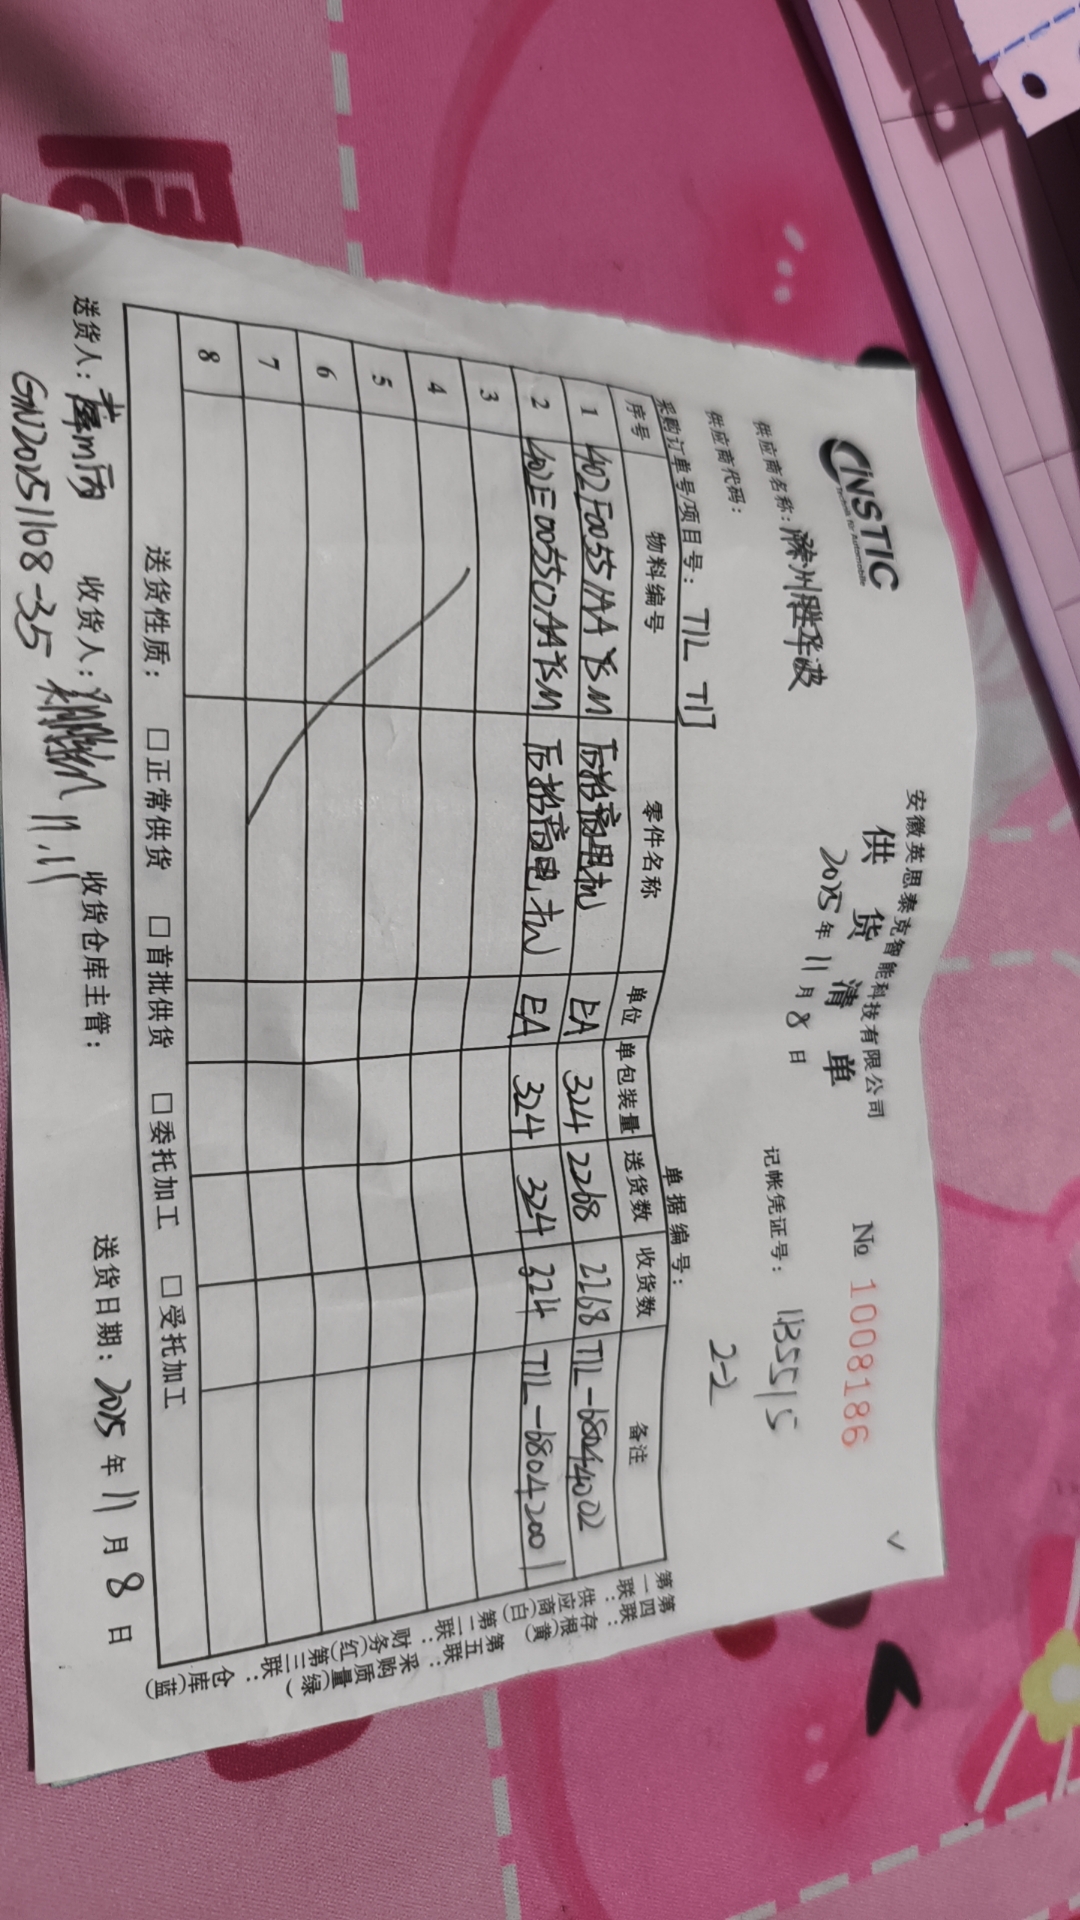 INSTIC
Technik für Automobile
安徽英思泰克智能科技有限公司
供货清单
№ 1008186
2025年11月8日
供应商名称：滁州胜华波
记帐凭证号：113551S
供应商代码：
2-2
采购订单号/项目号：T1L T1J
单据编号：
序号 物料编号 零件名称 单位 单包装量 送货数 收货数 备注
1 402F00551AAYSM 后抬高电机 EA 324 2268 2268 T1L-68044002
2 402E00550AAYSM 后抬高电机 EA 324 324 324 T1L-68042001
3
4
5
6
7
8
送货性质： □正常供货 □首批供货 □委托加工 □受托加工
送货人： 收货人： 11.11 收货仓库主管： 送货日期：2025年11月8日
GN20251108-35
第一联：存根(黄)
第四联：供应商(白)
第二联：财务(红)
第五联：采购质量(绿)
第三联：仓库(蓝)